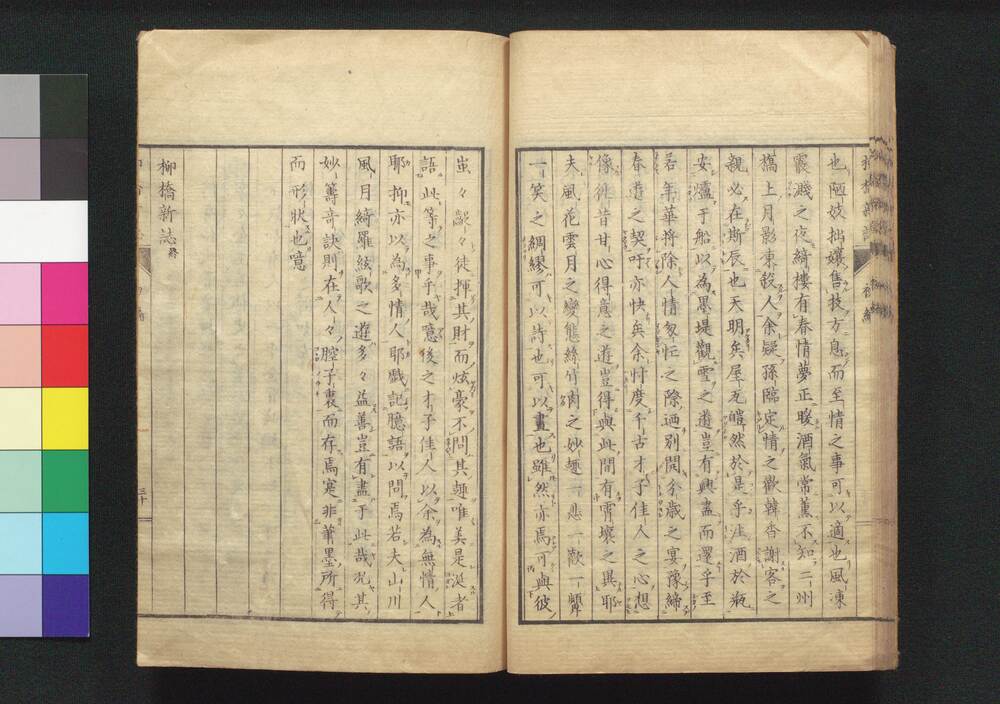 也陋妓拙孃售技方息而至情之事可以適也風凍
霰濺之夜綺樓有春情夢正暖酒氣常薰不知二州
橋上月影凍殺人余疑孫臨定情之歡韓香謝客之
親必在斯辰也天明矣屋瓦皚然於是乎沽酒於瓶
安爐于船以為墨堤觀雪之遊豈有興盡而還乎至
若年華將除人情怱忙之際迺別開分歲之宴豫締
春遊之契吁亦快矣余忖度千古才子佳人之心想
像徃昔甘心得意之遊豈得與此間有霄壤之異耶
夫風花雲月之變態絲竹肉之妙趣一悲一歡一顰
一笑之綢繆可以詩也可以畫也雖然亦焉可與彼
蚩々蠢々徒揮其財而炫豪不問其趣唯美是涎者
語此等之事乎哉噫後之才子佳人以余為無情人
耶抑亦以為多情人耶戲記臆語以問焉若夫山川
風月綺羅絃歌之遊多々益善豈有盡于此哉况其
妙籌奇訣則在人々腔子裏而存焉寔非華墨所得
而形狀也噫
柳橋新誌終
三十